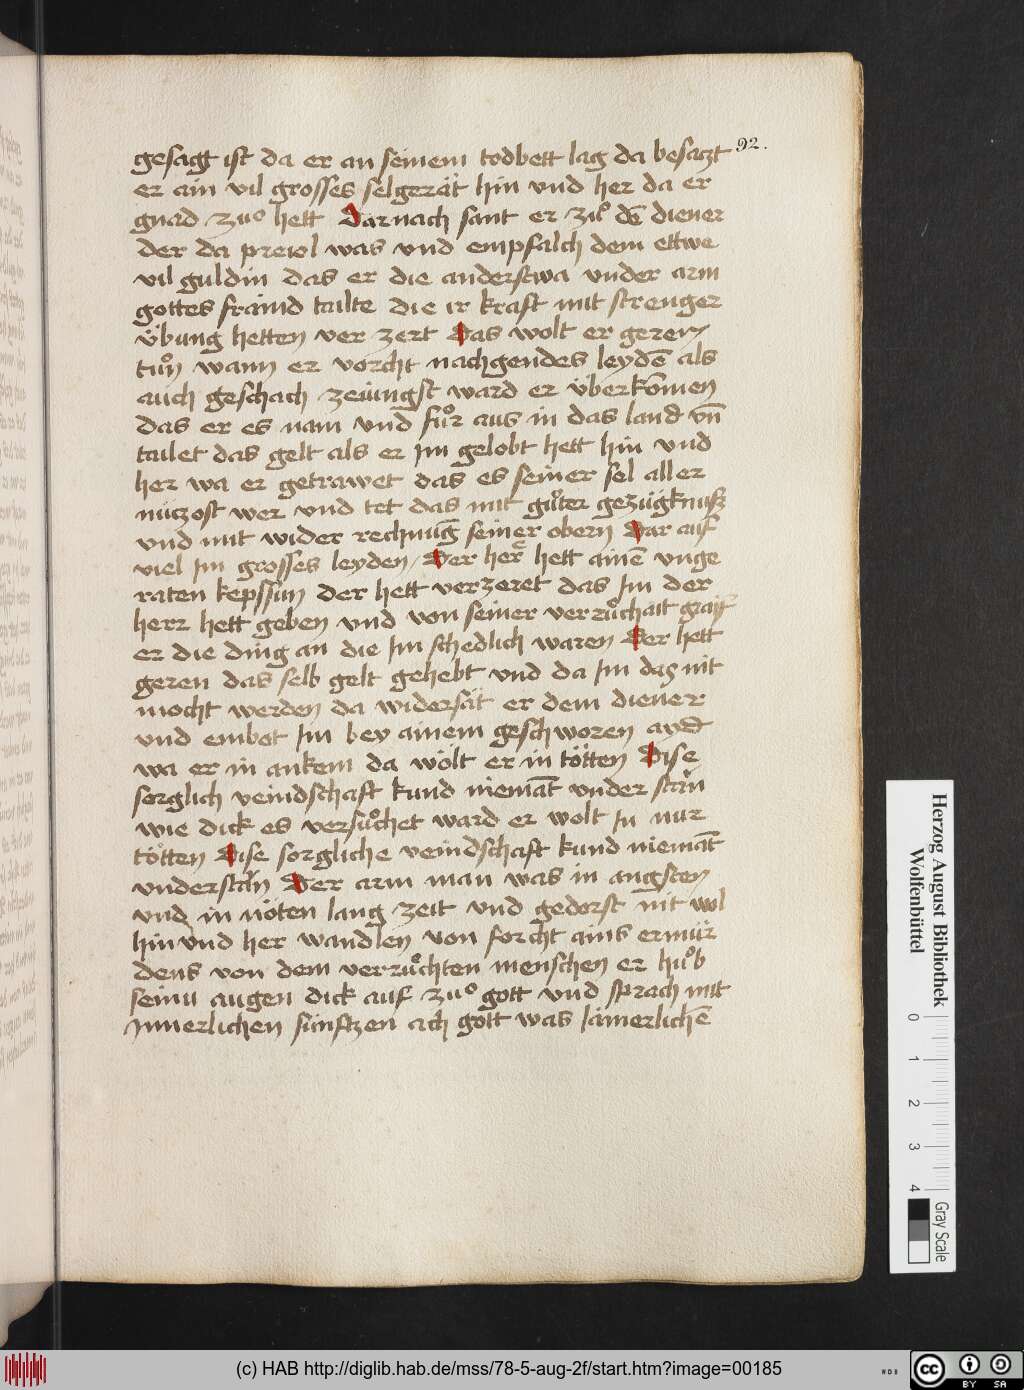 92.
gesagt ist da er an seinem todbett lag da besaczt
er ain vil grosses selgerät hin vnd her da er
gnad zuͦ hett Darnach sant er zuͦ dē diener
der da preiol was vnd empfalch dem ettwe
vil guldin das er die anderstwa vnder arm
gottes fraind tailte die ir kraft mit strenger
übung hetten ver zert Das wolt er geren
tuͦn wann er vorcht nachgendes leydē als
auch geschach zeiungst ward er überkōmen
das er es nam vnd fuͦr aus in das land vn̄
tailet das gelt als er Im gelobt hett hin vnd
her wa er getrawet das es seiner sel aller
nüczost wer vnd tet das mit guͦter gezügknusz
vnd mit wider rechnūg seiner obern Dar auf
viel Im grosses leyden / Der herr hett ainē vnge
raten kepssun der hett verzeret das Im der
herr hett geben vnd von seiner verruͦchait graiff
er die ding an die Im schedlich waren Der hett
geren das selb gelt gehebt vnd da Im das nit
mocht werden da widersät er dem diener
vnd embot Im bey ainem geschworen ayd
wa er in ankem da wölt er in tötten Dise
sorglich veindschaft kund niemāt vnder stän
wie dick es versuͦchet ward er wolt In nur
tötten Dise sorgliche veindschaft kund niemāt
vnderstän Der arm man was in angsten
vnd in nöten lang zeit vnd gedorst nit wol
hin vnd her wandlen von forcht ains ermür
dens von dem verruͦchten menschen er huͦb
seinu augen dick auf zuͦ gott vnd sprach mit
Innerlichen sünftzen ach gott was Iämerlichē
Herzog August Bibliothek
Wolfenbüttel
0 1 2 3 4
Gray Scale
(c) HAB http://diglib.hab.de/mss/78-5-aug-2f/start.htm?image=00185
WDB
cc BY SA